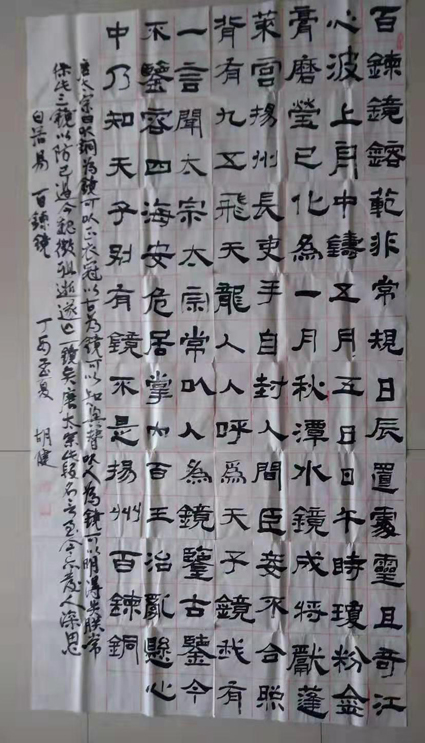 百鍊鏡鎔範非常規日辰置處靈且奇江
心波上舟中鑄五月五日日午時瓊粉金
膏磨瑩已化為一月秋潭水鏡成將獻蓬
萊宮揚州長吏手自封人間臣妾不合照
背有九五飛天龍人人呼爲天子鏡我有
一言聞太宗太宗常以人為鏡鑒古鑒今
不鑒容四海安危居掌内百王治亂懸心
中乃知天子別有鏡不是揚州百鍊銅
唐太宗曰以銅為鏡可以正衣冠以古為鏡可以知興替以人為鏡可以明得失朕常
保此三鏡以防己過今魏徵殂逝遂亡一鏡矣唐太宗此段名言至今亦發人深思
白居易 百鍊鏡 丁酉夏 胡健